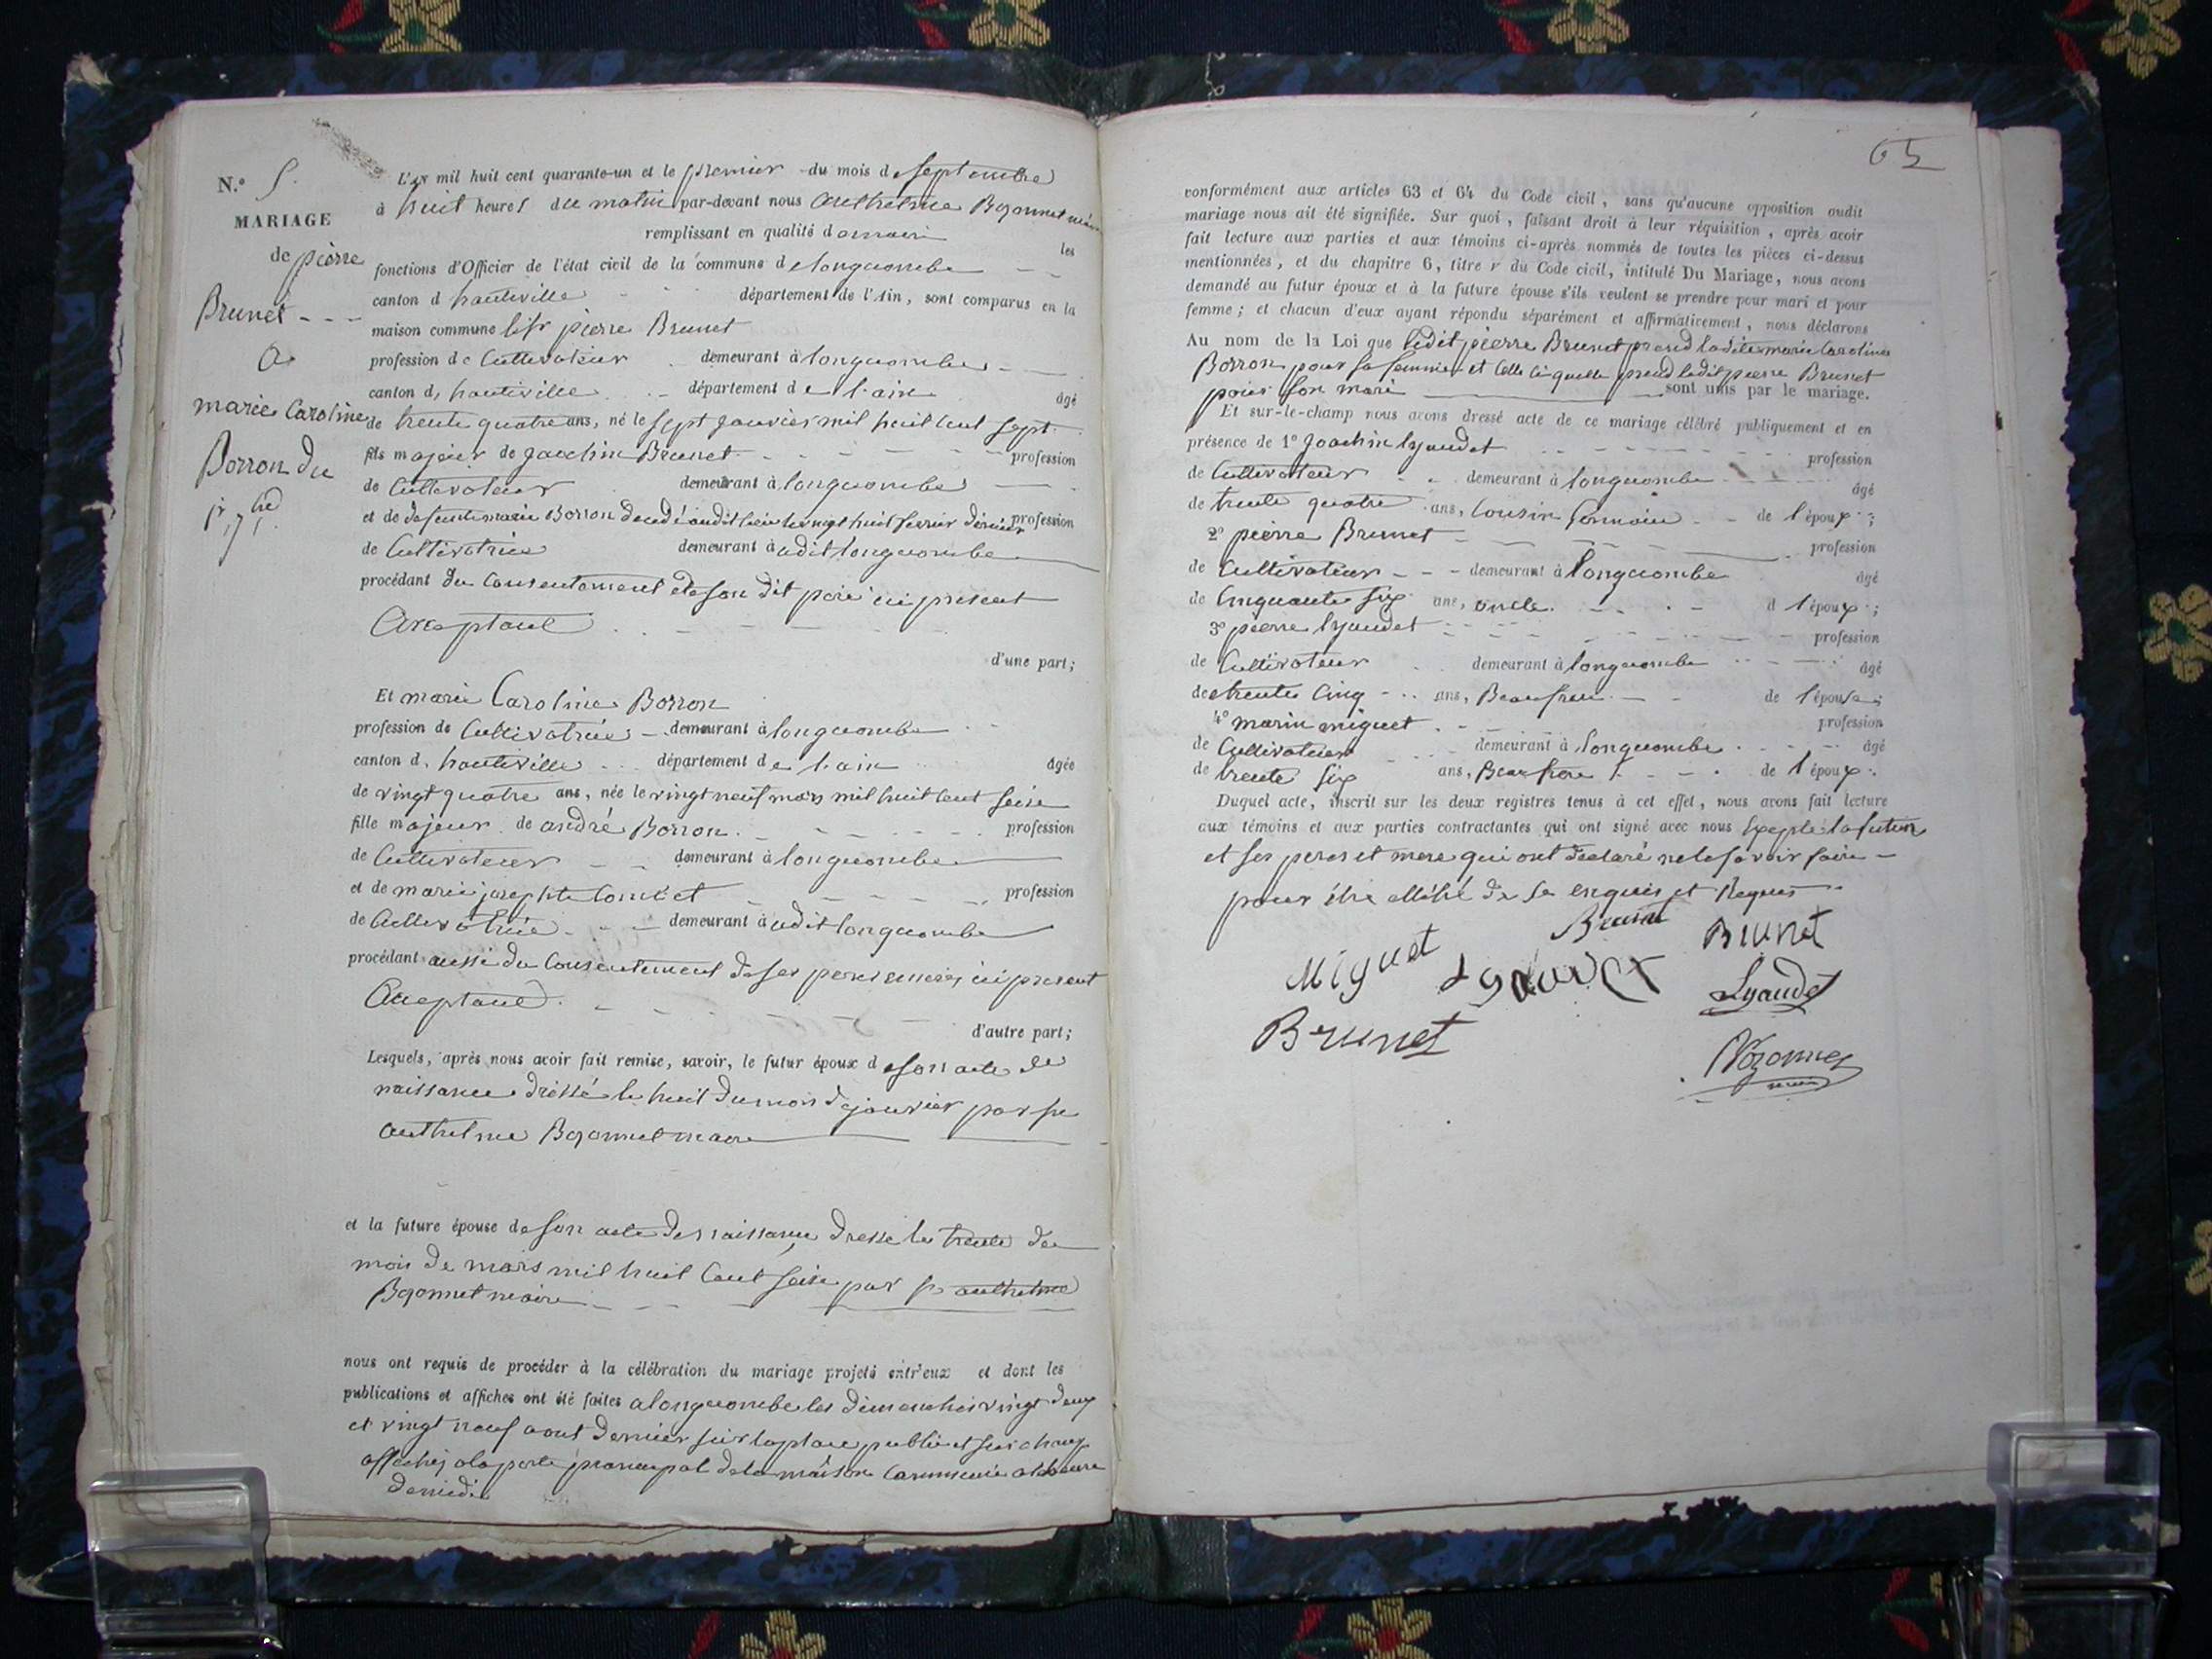 N.º 5.
MARIAGE
de pierre
Brunet
a
marie Caroline
Borron du
1r 7bre
L'an mil huit cent quarante-un et le premier du mois de septembre
à huit heures du matin par-devant nous Anthelme Bozonnet maire
remplissant en qualité de maire les
fonctions d'Officier de l'état civil de la commune de longecombe
canton d hauteville département de l'Ain, sont comparus en la
maison commune le sr pierre Brunet
profession de Cultivateur demeurant à longecombe
canton d, hauteville département de l'ain âgé
de trente quatre ans, né le sept janvier mil huit cent sept
fils majeur de joachim Brunet profession
de Cultivateur demeurant à longecombe
et de defunte marie Borron decedé audit lieu le vingt huit fevrier dernier profession
de Cultivatrice demeurant à audit longecombe
procédant du Consentement de son dit pere ici present
Acceptant
d'une part;
Et marie Caroline Borron
profession de Cultivatrice demeurant à longecombe
canton d, hauteville département de l'ain âgée
de vingt quatre ans, née le vingt neuf mars mil huit cent seise
fille majeur de andré Borron profession
de Cultivateur demeurant à longecombe
et de marie josephte Combet profession
de Cultivatrice demeurant à audit longecombe
procédant aussi du Consentement de ses pere et mere, ici present
Acceptant
d'autre part;
Lesquels, après nous avoir fait remise, savoir, le futur époux de son acte de
naissance dressé le huit du mois de janvier par sr
anthelme Bozonnet maire
et la future épouse de son acte de naissance dressé le trente du
mois de mars mil huit Cent seise par sr anthelme
Bozonnet maire
nous ont requis de procéder à la célébration du mariage projeté entr'eux et dont les
publications et affiches ont été faites a longecombe les dimanches vingt deux
et vingt neuf aout dernier sur la place public et
affiches a la porte principal de la maison Commune a l heure
de midi
65
conformément aux articles 63 et 64 du Code civil, sans qu'aucune opposition audit
mariage nous ait été signifiée. Sur quoi, faisant droit à leur réquisition, après avoir
fait lecture aux parties et aux témoins ci-après nommés de toutes les pièces ci-dessus
mentionnées, et du chapitre 6, titre v du Code civil, intitulé Du Mariage, nous avons
demandé au futur époux et à la future épouse s'ils veulent se prendre pour mari et pour
femme; et chacun d'eux ayant répondu séparément et affirmativement, nous déclarons
Au nom de la Loi que ledit pierre Brunet prend ladite marie Caroline
Borron pour sa femme et Celle ci quelle prend ledit pierre Brunet
pour son mari sont unis par le mariage.
Et sur-le-champ nous avons dressé acte de ce mariage célébré publiquement et en
présence de 1º joachim lyaudet profession
de Cultivateur demeurant à longecombe âgé
de trente quatre ans, Cousin Germain de l'époux;
2º pierre Brunet profession
de Cultivateur demeurant à longecombe âgé
de Cinquante six ans, oncle d l'époux;
3º pierre lyaudet profession
de Cultivateur demeurant à longecombe âgé
de trente Cinq ans, Beaufrere de l'épouse;
4º marin miguet profession
de Cultivateur demeurant à longecombe âgé
de trente six ans, Beaufrere de l'époux.
Duquel acte, inscrit sur les deux registres tenus à cet effet, nous avons fait lecture
aux témoins et aux parties contractantes qui ont signé avec nous Excepté la future
et ses peres et mere qui ont declaré ne le savoir faire
pour être de ce enquis et Requis
Brunet
Brunet
Miguet
Lyaudet
Lyaudet
Brunet
Bozonnet
maire